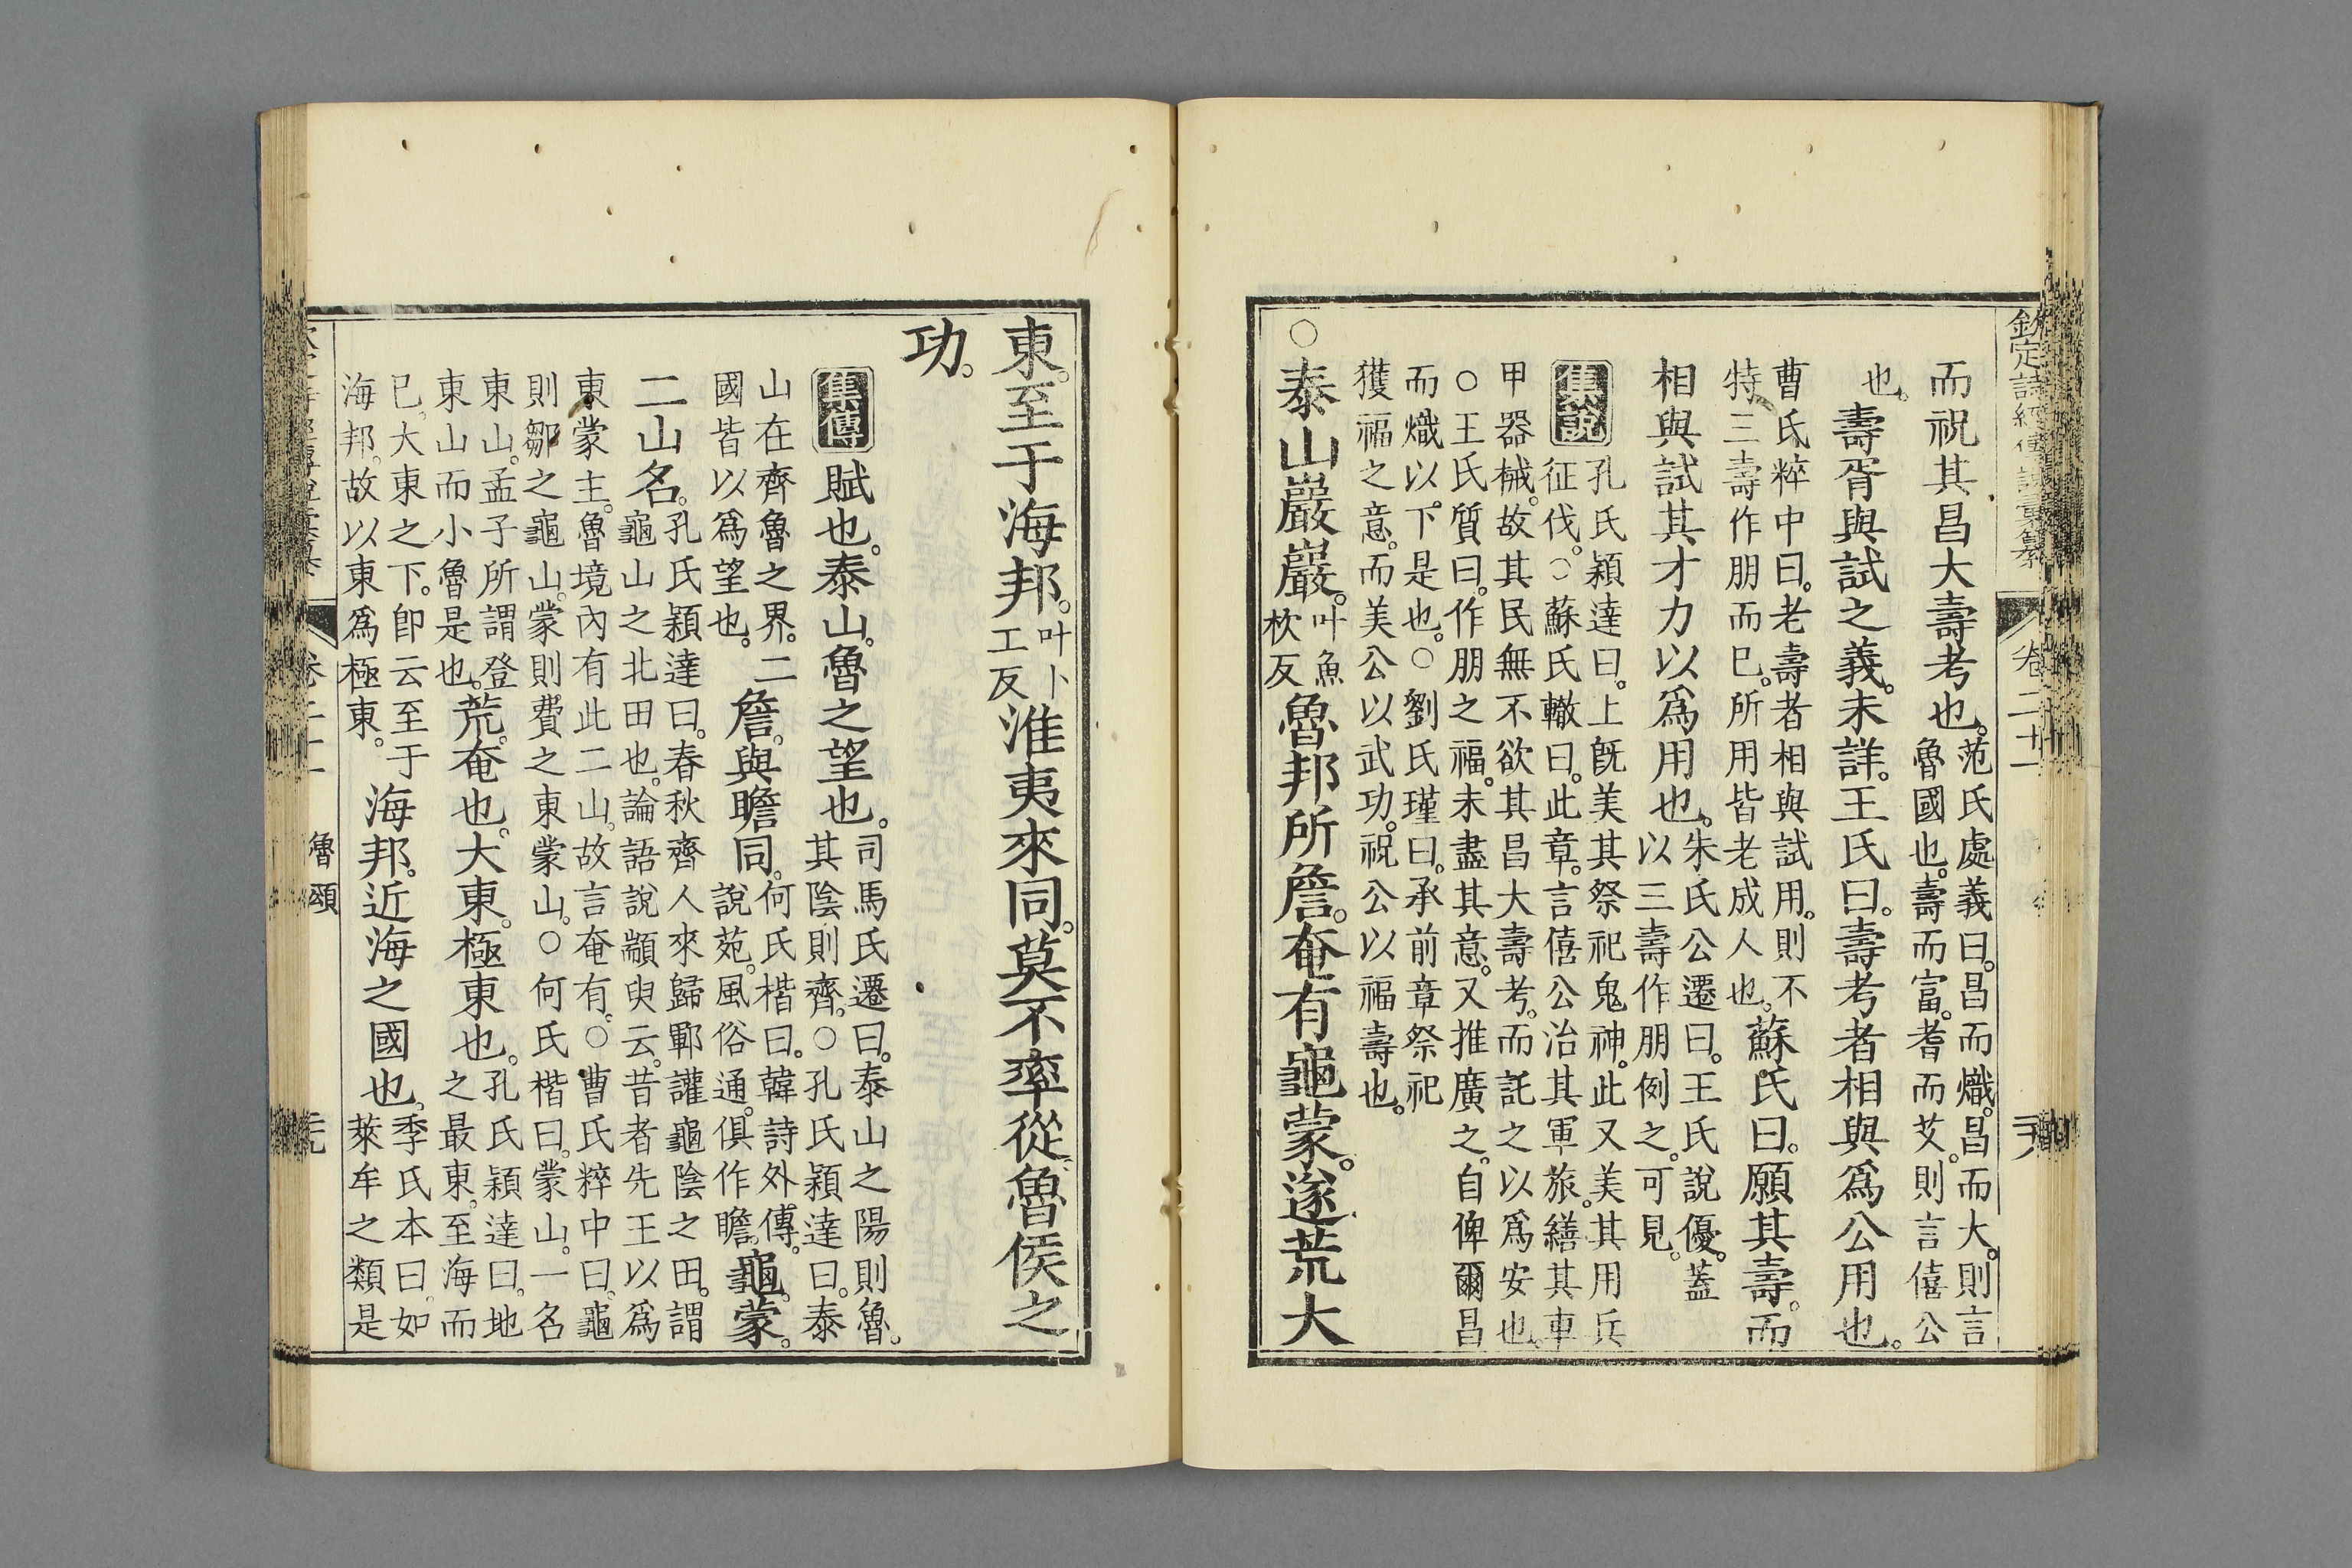 欽定詩經傳說彙纂 卷二十一
而祝其昌大壽考也。范氏處義曰。昌而熾。昌而大。則言
魯國也。壽而富。耆而艾。則言僖公
也。壽胥與試之義。未詳。王氏曰。壽考者相與爲公用也。
曹氏粹中曰。老壽者相與試用。則不
特三壽作朋而已。所用皆老成人也。蘇氏曰。願其壽。而
相與試其才力以爲用也。朱氏公遷曰。王氏說優。蓋
以三壽作朋例之。可見。
集說 孔氏穎達曰。上既美其祭祀鬼神。此又美其用兵
征伐。○蘇氏轍曰。此章。言僖公治其軍旅。繕其車
甲器械。故其民無不欲其昌大壽考。而託之以爲安也。
○王氏質曰。作朋之福。未盡其意。又推廣之。自俾爾昌
而熾以下。是也。○劉氏瑾曰。承前章祭祀
獲福之意。而美公以武功。祝公以福壽也。
○泰山巖巖。叶魚枕反魯邦所詹。奄有龜蒙。遂荒大
東。至于海邦。叶卜工反淮夷來同。莫不率從。魯侯之
功。
集傳 賦也。泰山。魯之望也。司馬氏遷曰。泰山之陽則魯。
其陰則齊。○孔氏穎達曰。泰
山在齊魯之界。二
國皆以爲望也。詹。與瞻同。何氏楷曰。韓詩外傳。
說苑。風俗通。俱作瞻。龜蒙。
二山名。孔氏穎達曰。春秋齊人來歸鄆讙龜陰之田。謂
龜山之北田也。論語說顓臾云。昔者先王以爲
東蒙主。魯境內有此二山。故言奄有。○曹氏粹中曰。龜
則鄒之龜山。蒙則費之東蒙山。○何氏楷曰。蒙山。一名
東山。孟子所謂登
東山而小魯是也。荒。奄也。大東。極東也。孔氏穎達曰。地
之最東。至海而
已。大東之下。卽云至于
海邦。故以東爲極東。海邦。近海之國也。季氏本曰。如
萊牟之類是
卷二十一 魯頌